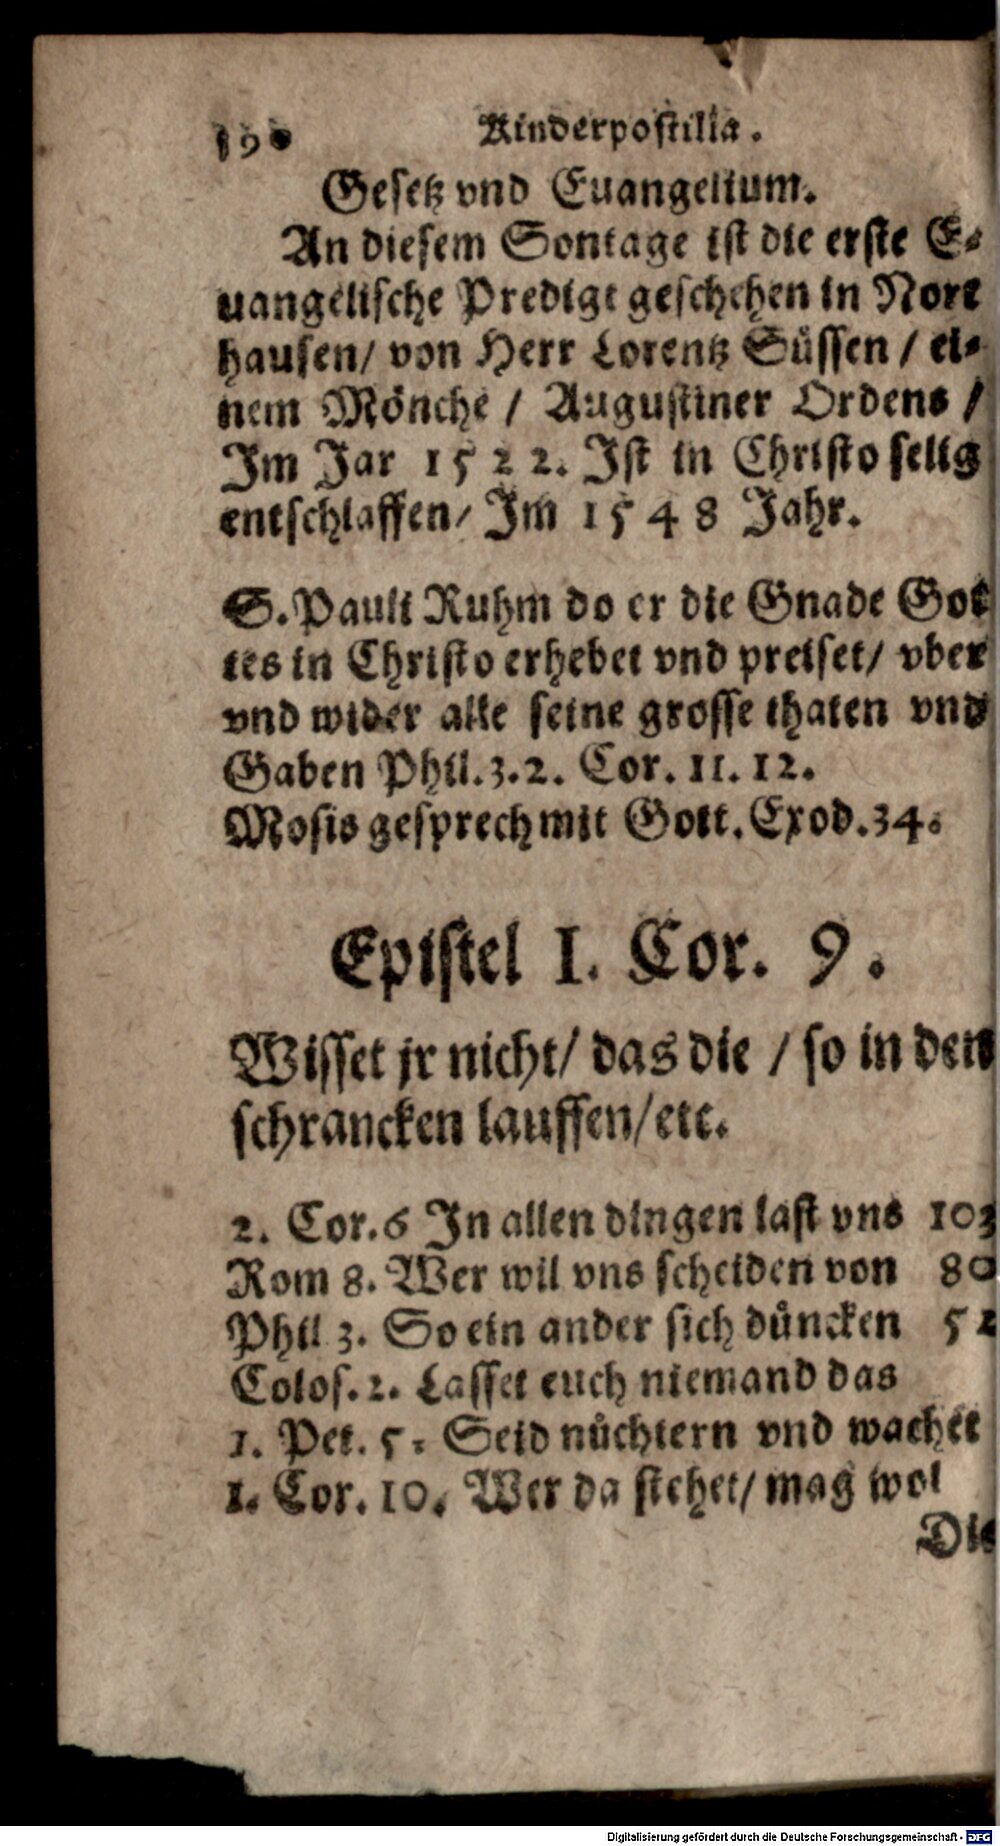 190 Kinderpostilla.
Gesetz vnd Euangelium.
An diesem Sontage ist die erste E-
uangelische Predigt geschehen in Nort
hausen/ von Herr Lorentz Süssen / ei-
nem Mönche / Augustiner Ordens /
Im Jar 1522. Ist in Christo selig
entschlaffen/ Im 1548 Jahr.
S. Pauli Ruhm do er die Gnade Got
tes in Christo erhebet vnd preiset/ vber
vnd wider alle seine grosse thaten vnd
Gaben Phil. 3. 2. Cor. 11. 12.
Mosis gesprech mit Gott. Exod. 34.
Epistel 1. Cor. 9.
Wisset jr nicht/ das die / so in den
schrancken lauffen/ etc.
2. Cor. 6 In allen dingen last vns 103
Rom 8. Wer wil vns scheiden von 80
Phil 3. So ein ander sich düncken 52
Colos. 2. Lasset euch niemand das
1. Pet. 5. Seid nüchtern vnd wachet
1. Cor. 10. Wer da stehet/ mag wol
Die
Digitalisierung gefördert durch die Deutsche Forschungsgemeinschaft - DFG